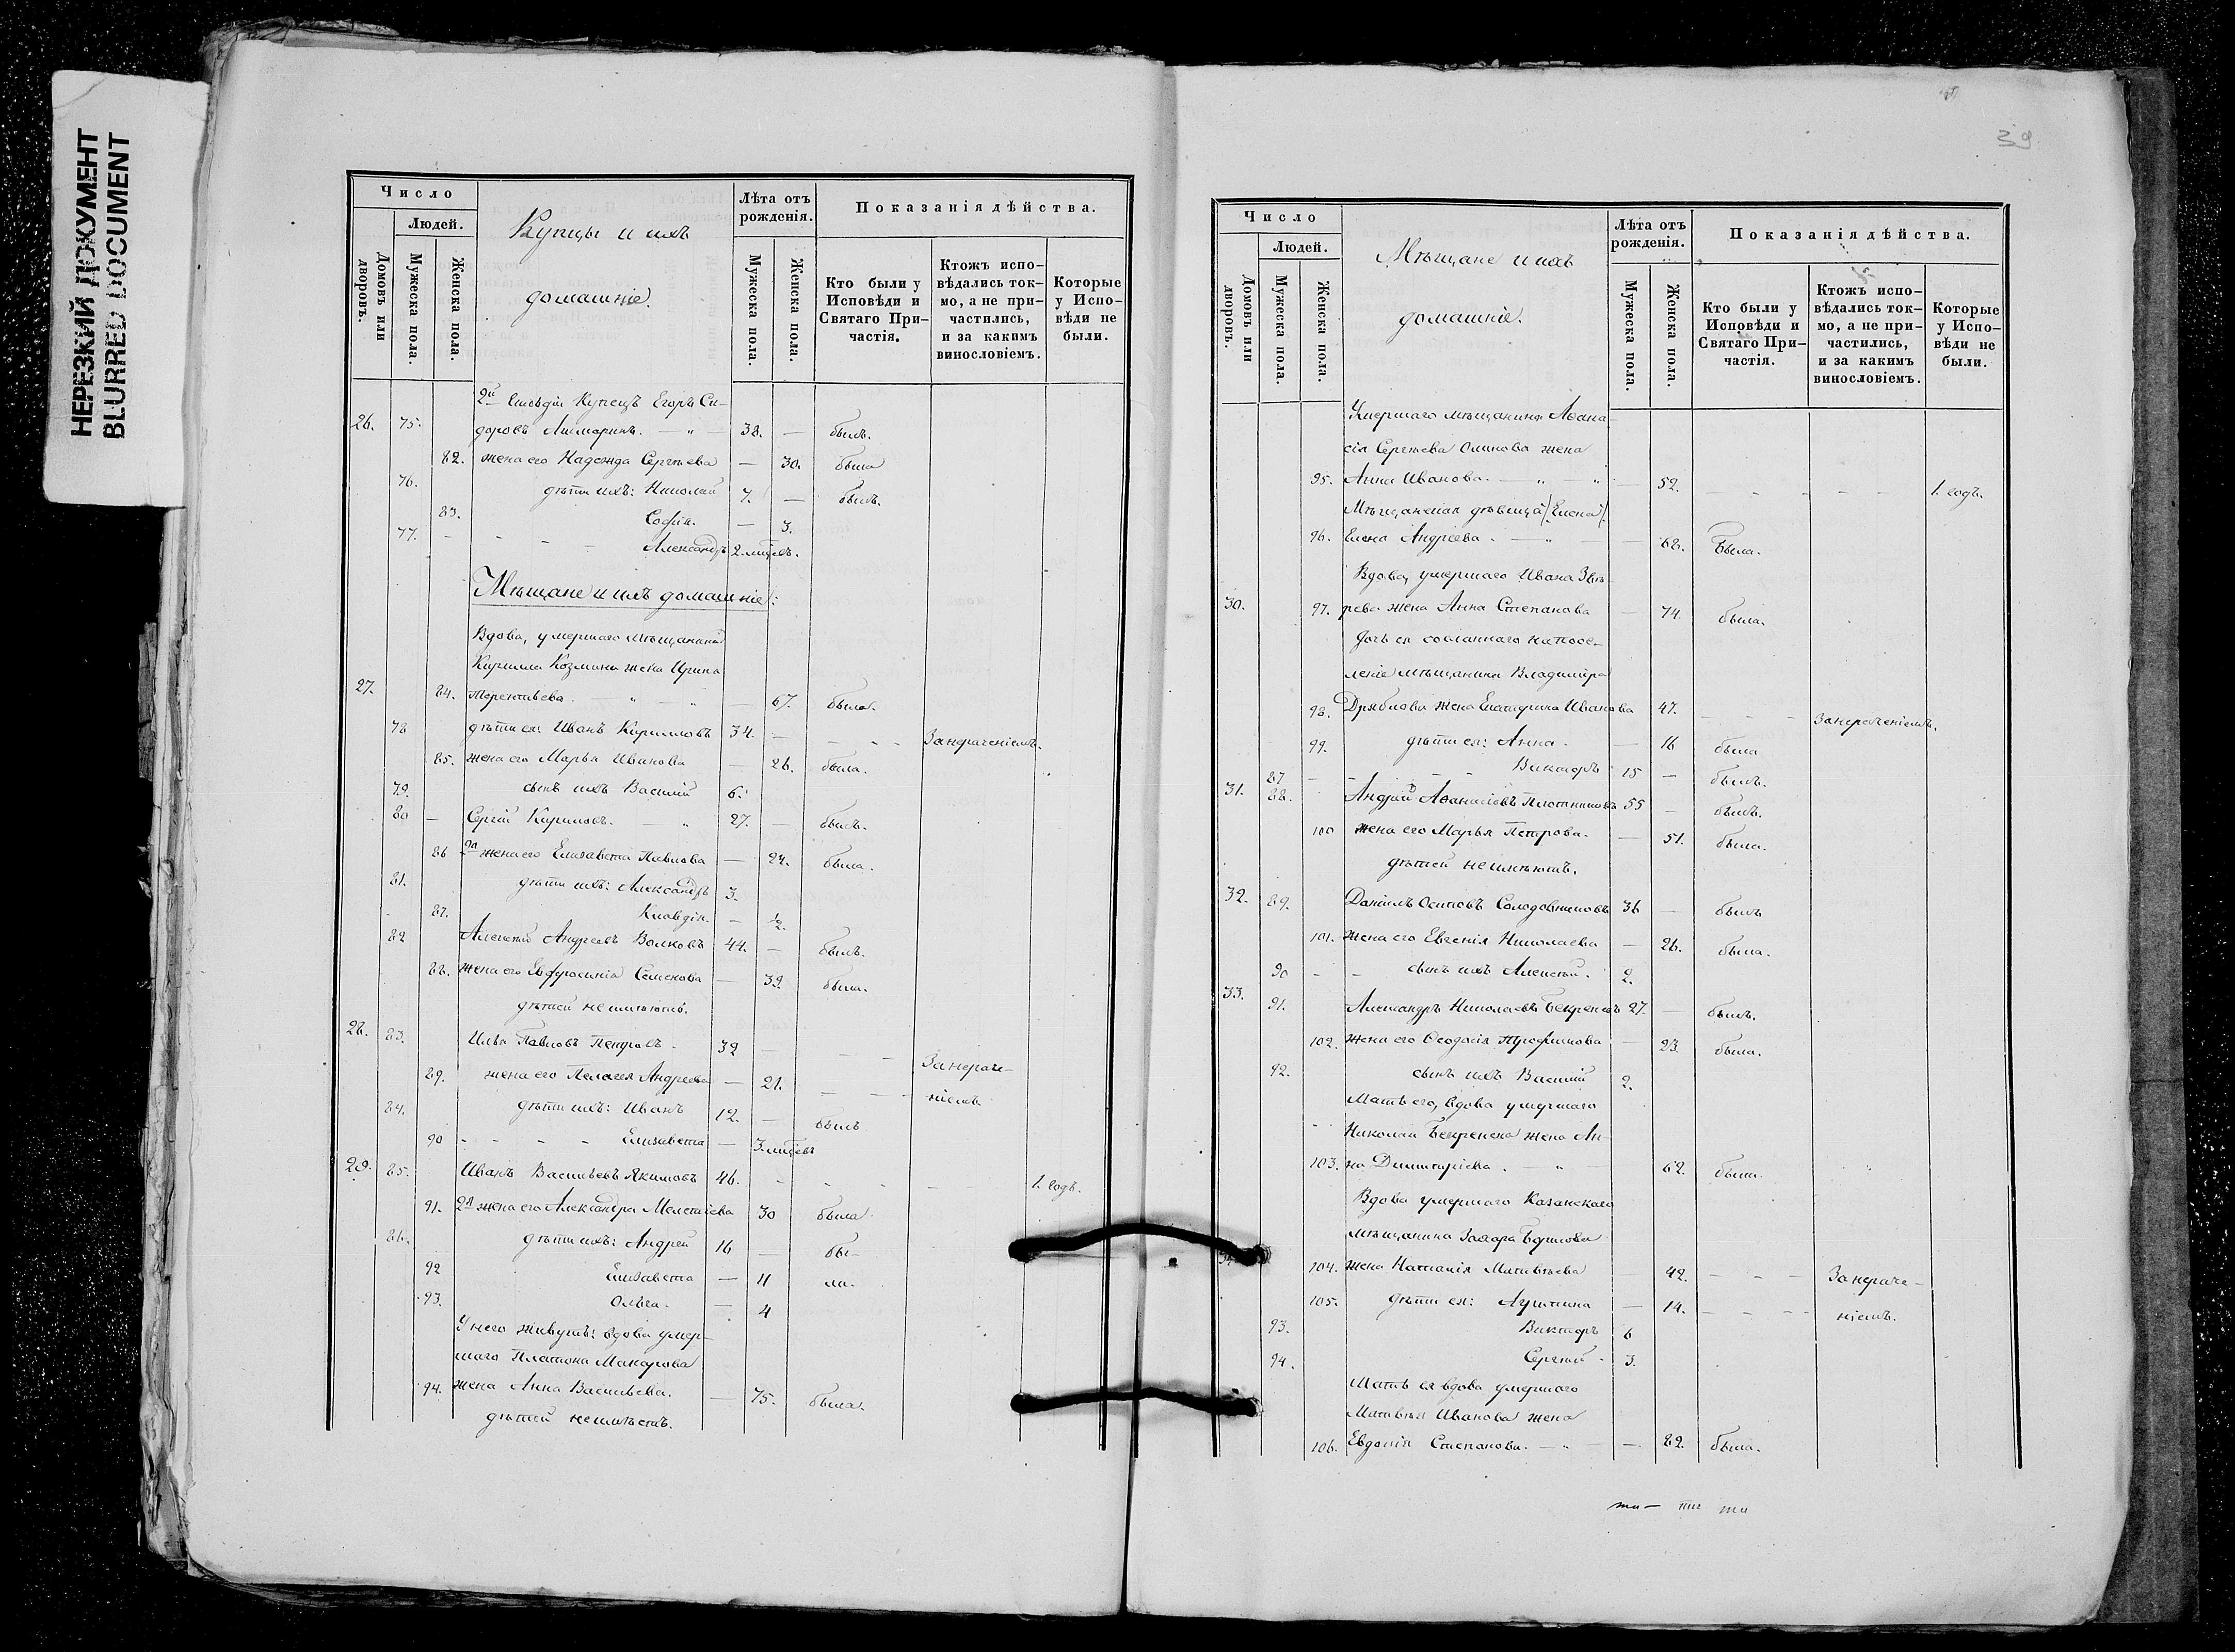 НЕРЕЗКИЙ ДОКУМЕНТ
BLURRED DOCUMENT
Число
Людей.
Домовъ или дворовъ.
Мужеска пола.
Женска пола.
Купцы и ихъ
домашніе.
Лѣта отъ рожденія.
Мужеска пола.
Женска пола.
Показанія дѣйства.
Кто были у Исповѣди и Святаго При-частія.
Ктожъ испо-вѣдались ток-мо, а не при-частились, и за какимъ винословіемъ.
Которые у Испо-вѣди не были.
2й Гильдіи Купецъ Егоръ Си-
26. 75. доровъ — " — 38. — былъ.
82. жена его Надежда Сергѣева — 30. была
76. дѣти ихъ: Николай 7. — былъ.
83. Софія. — 3.
77. - - - - Александръ 2. мѣсяц.
Мѣщане и ихъ домашніе:
Вдова, умершаго мѣщанина
Кирилла Козмина жена Ирина
27. 84. Терентьева. — " — " — 67. была.
78 дѣти ея: Иванъ Кирилловъ 34. — - - - За нерачѣніемъ.
85. жена его Марья Иванова — 26. была.
79. сынъ ихъ Василій 6.
80 — Сергій Кириловъ. — " 27. — былъ.
86 2я жена его Елизавета Павлова — 24. была.
81. дѣти ихъ: Александръ 3.
87. Клавдія. — ½.
82 Алексѣй Андреевъ Волковъ 44. — былъ.
88. жена его Евфросинія Семенова — 39. была.
дѣтей не имѣютъ.
28. 83. Илья Павловъ Петровъ. 32 - - За нераче-
89. жена его Пелагея Андреева — 21. - - - ніемъ
84. дѣти ихъ: Иванъ 12. — былъ
90 - - - - Елизавета — 3. мѣсяцевъ
29. 85. Иванъ Васильевъ Якимовъ 46. - - - - - 1. годъ.
91. 2я жена его Александра Мелетіева 30 была
86. дѣти ихъ: Андрей 16 — бы-
92 Елизавета — 11 ли.
93. Ольга. — 4
У него живутъ: вдова умер-
шаго Платона Макарова
94. жена Анна Васильева. — 75. была.
дѣтей не имѣетъ.
39
Число
Людей.
Домовъ или дворовъ.
Мужеска пола.
Женска пола.
Мѣщане и ихъ
домашніе.
Лѣта отъ рожденія.
Мужеска пола.
Женска пола.
Показанія дѣйства.
Кто были у Исповѣди и Святаго При-частія.
Ктожъ испо-вѣдались ток-мо, а не при-частились, и за какимъ винословіемъ.
Которые у Испо-вѣди не были.
Умершаго мѣщанина Аѳана-
сія Сергѣева жена
95. Анна Иванова. — " — " — 52. - - - - - 1. годъ.
Мѣщанская дѣвица /Елена/
96. Елена Андреева. — " — — 68. Была.
Вдова, умершаго Ивана Звѣ-
30. 97. рева жена Анна Степанова — 74. была.
Дочь ея сосланнаго на посе-
леніе мѣщанина Владиміра
98. Дряблова жена Екатерина Иванова 47. - - - За нераченіемъ.
99. дѣти ея: Анна. — 16 была
87 - - - - Викторъ 15 — былъ.
31. 88. Андрей Аѳанасіевъ Плотниковъ 55 — былъ.
100 жена его Марья Петрова. — 51. была.
дѣтей не имѣютъ.
32. 89. Даніилъ Осиповъ Солодовниковъ 36 — былъ
101. жена его Евгенія Николаева — 26. была.
90 - - сынъ ихъ Алексѣй. 2.
33. 91. Александръ Николаевъ Бекреневъ 27. — былъ.
102. жена его Ѳеодосія Трофимова — 23. была.
92. сынъ ихъ Василій 2.
Мать его, вдова умершаго
Николая Бекренева жена Ан-
103. на Димитріева. — " — 62. была.
Вдова умершаго Казанскаго
мѣщанина Захара
34. 104. жена Наталія Матвѣева — 42. - - - За нераче-
105. дѣти ея: — 14. - - - - ніемъ.
93. Викторъ 6
94. Сергѣй. 3.
Мать ея вдова умершаго
Матвѣя Иванова жена
106. Евдокія Степанова. — " — — 82. была.